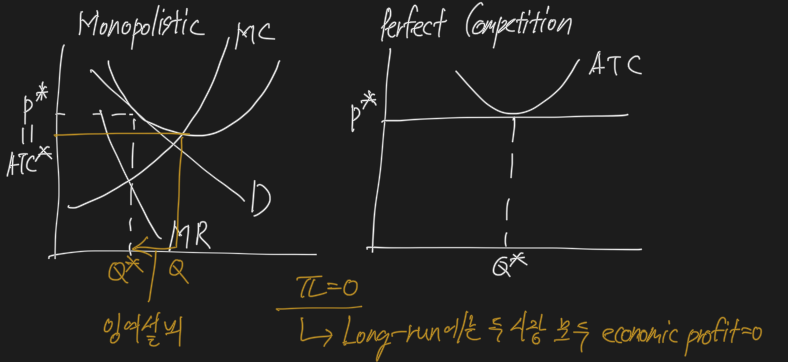 Monopolistic
MC
P*
=
ATC*
D
MR
Q*
Q
잉여설비
Perfect Competition
ATC
P*
Q*
π=0
↳ Long-run에는 두 시장 모두 economic profit=0